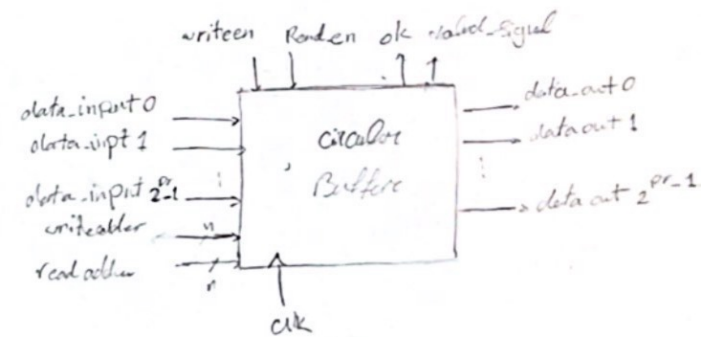 writeen Readen ok valid_signal
data_input 0
data_inpt 1
data_input 2^pr-1
writeadder n
read adder n
circular
Buffere
data_out 0
data out 1
data out 2^pr-1
clk